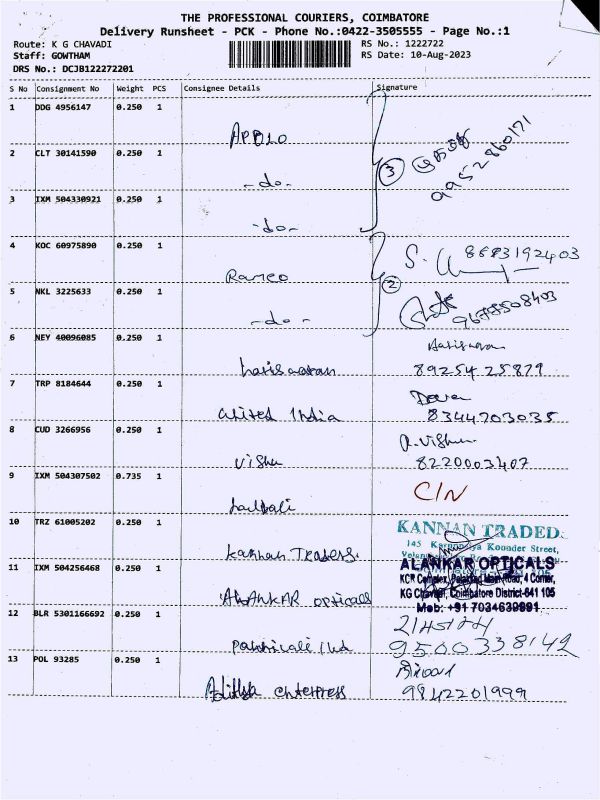 THE PROFESSIONAL COURIERS, COIMBATORE
Delivery Runsheet - PCK - Phone No.:0422-3505555 - Page No.:1
Route: K G CHAVADI
RS No.: 1222722
Staff: GOWTHAM
RS Date: 10-Aug-2023
DRS No.: DCJB122272201
S No Consignment No Weight PCS Consignee Details Signature
1 DDG 4956147 0.250 1
APOLO
2 CLT 30141590 0.250 1
-do-
3
9952860171
3 IXM 504330921 0.250 1
-do-
4 KOC 60975890 0.250 1
Ramco
S.
8683192403
2
5 NKL 3225633 0.250 1
-do-
9677508403
6 NEY 40096085 0.250 1
89254 25879
7 TRP 8184644 0.250 1
United India
8344703035
8 CUD 3266956 0.250 1
Vishu
8220003407
9 IXM 504307502 0.735 1
C/N
10 TRZ 61005202 0.250 1
Kannan Traders.
KANNAN TRADED
145 Koonder Street,
11 IXM 504256468 0.250 1
AlANKAR opticals
ALANKAR OPTICALS
KCR Complex, Main Road, 4 Corner,
KG Chavadi, Coimbatore District-641 105
Mob: +91 7034639891
12 BLR 5301166692 0.250 1
9500338142
13 POL 93285 0.250 1
Adithya enterpress
9842201999